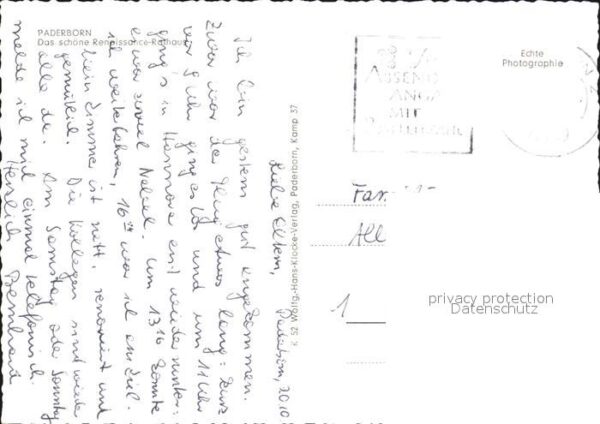 PADERBORN
Das schöne Renaissance-Rathaus
Echte
Photographie
ABSEND
ANGA
MIT
K 52 Wolfg.-Hans-Klocke-Verlag, Paderborn, Kamp 37
Paderborn, 20.10
Liebe Eltern,
Ich bin gestern gut angekommen.
Zwar war der Flug etwas lang: kurz
vor 8 Uhr ging es los und um 11 Uhr
ging's in Hannover erst wieder runter:
es war soviel Nebel. Um 13 16 konnte
ich weiterfahren, 16 war ich am Ziel.
Mein Zimmer ist nett, renoviert und
gemütlich. Die Kollegen sind wieder
alle da. Am Samstag oder Sonntag
melde ich mich einmal telefonisch.
Herzlich Bernhard
Fam.
All
1
privacy protection
Datenschutz